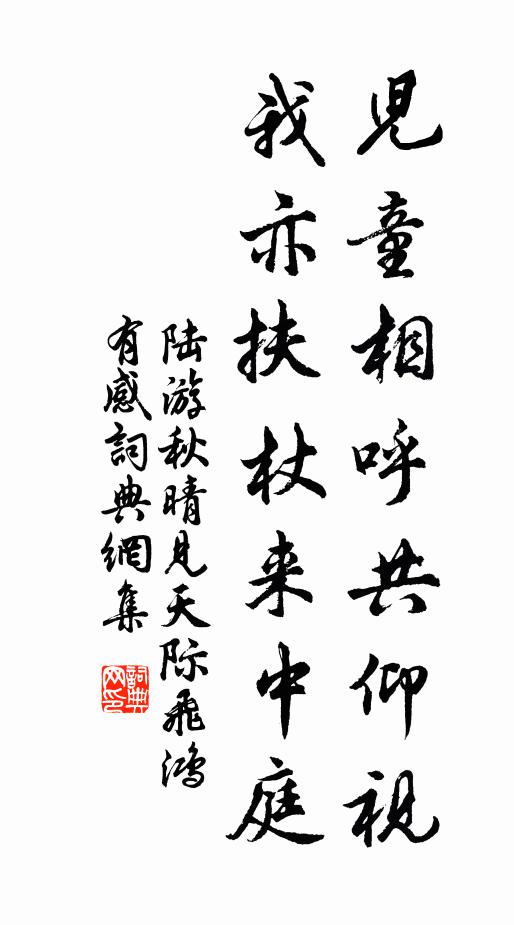 児童相呼共仰視
我亦扶杖来中庭
陆游秋晴見天际飛鴻
有感詞典網集
詞典网印